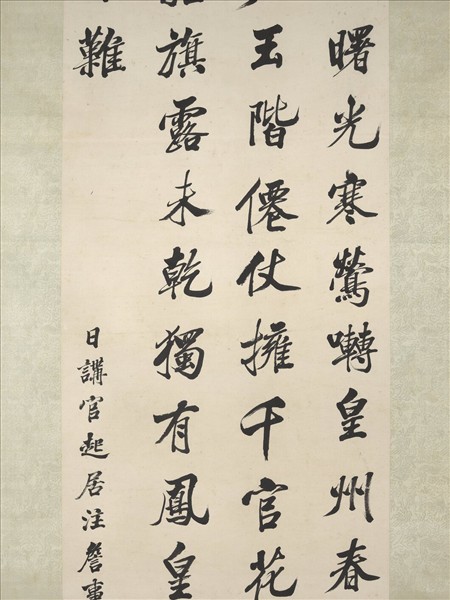 曙光寒鶯囀皇州春
玉階僊仗擁千官花
旗露未乾獨有鳳皇
難
日講官起居注詹事